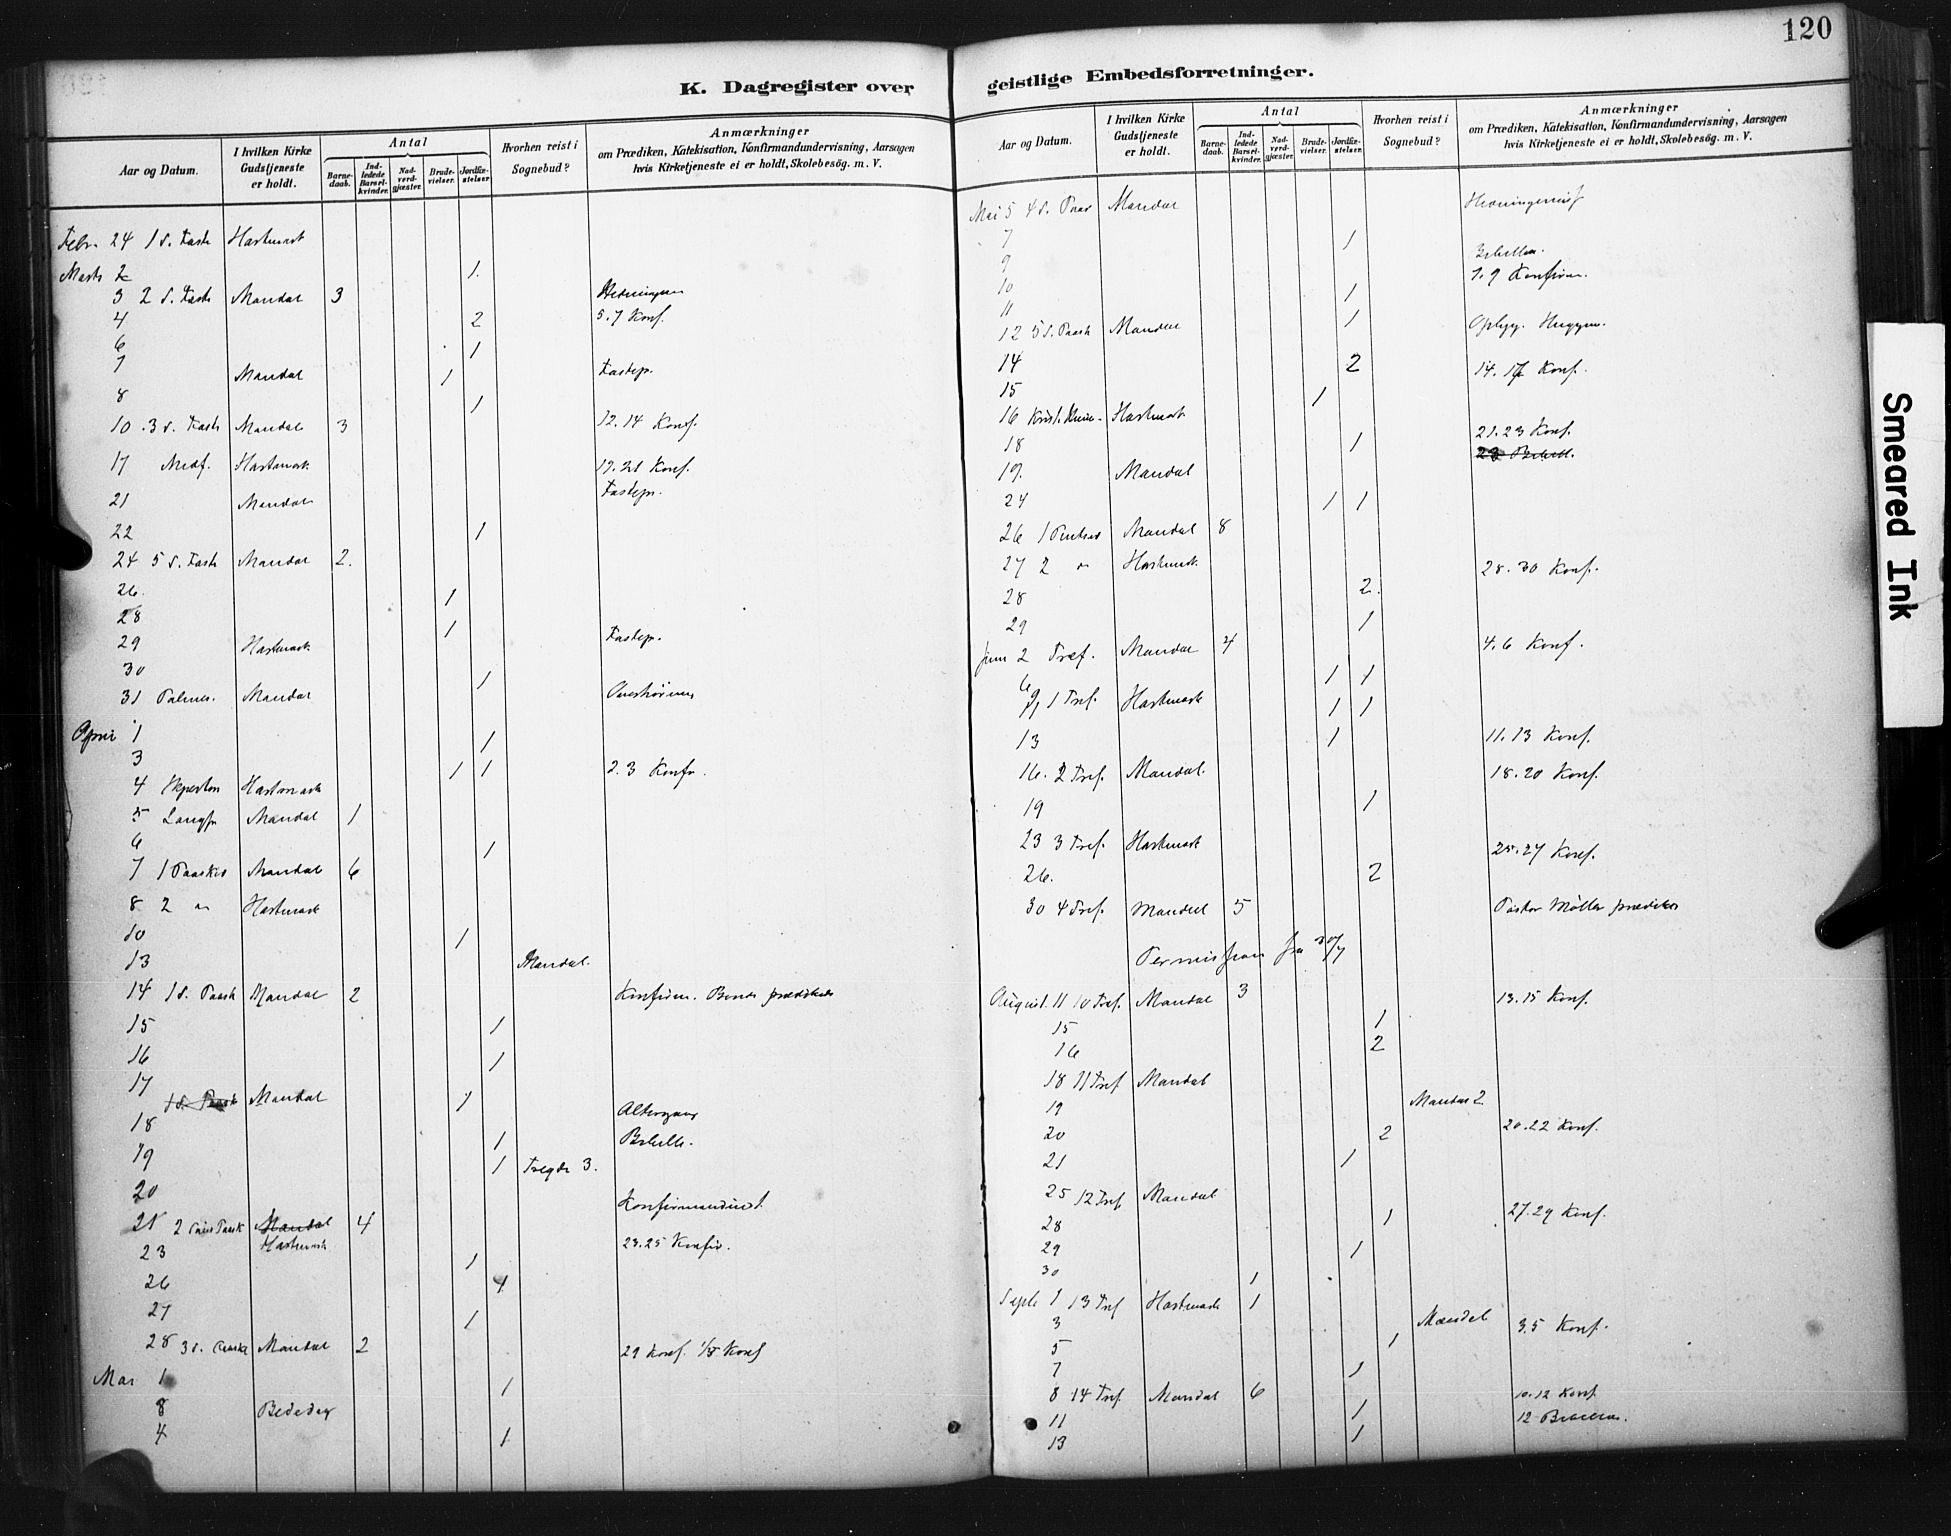 120
K. Dagregister over
geistlige Embedsforretninger.
Aar og Datum.
I hvilken Kirke Gudstjeneste er holdt.
Antal
Barnedaab.
Indledede Barselkvinder.
Nadverdgjæster.
Brudevielser.
Jordfæstelser.
Hvorhen reist i Sognebud?
Anmærkninger
om Prædiken, Katekisation, Konfirmandundervisning, Aarsagen
hvis Kirketjeneste ei er holdt, Skolebesög. m. V.
Febr. 24 1 S. Faste
Marts 2 1.
3 2 S. Faste Mandal 3
4 2 5.7 Konf.
6 1
7 Mandal 1 Fastepr.
8 1
10 3 S. Faste Mandal 3 12.14 Konf.
17 Midf. 19.21 Konf.
21 Mandal Fastepr.
22 1
24 5 S. Faste Mandal 2.
26. 1
28 1
29 Fastepr.
30 1
31 Palmes. Mandal
April 1 1
3 1 1 2.3 Konfr.
4
5 Langfr Mandal 1
6 1
7 1 Paasked Mandal 6
8 2
10 1
13 Mandal.
14 1 S. Paask Mandal 2 Konfirm.
15 1
16 1
17 1 S. Paask Mandal 1 Altergang
18 1 Bibell.
19 1 Tregde 3.
20
21 2 Mandal 4
23 1 23.25 Konfir.
26 1
27 1
28 3 S. Paaske Mandal 2 29 Konf. 1/5 Konf
Mai 1 1
8 Bededag
4 1
Aar og Datum.
I hvilken Kirke Gudstjeneste er holdt.
Antal
Barnedaab.
Indledede Barselkvinder.
Nadverdgjæster.
Brudevielser.
Jordfæstelser.
Hvorhen reist i Sognebud?
Anmærkninger
om Prædiken, Katekisation, Konfirmandundervisning, Aarsagen
hvis Kirketjeneste ei er holdt, Skolebesög. m. V.
Mai 5 4 S. Paas Mandal
7 1
9 7.9 Konfirm.
10 1
11 1
12 5 S. Paask Mandal
14 2 14. 17 Konf.
15 1
16
18 1 21.23 Konf.
19. Mandal
24 1 1
26 1 Mandal 8
27 2 28.30 Konf.
28 2.
29 1
Juni 2 Tref. Mandal 4 4.6 Konf.
6 1 1
9 1 Tref. 1 1
13 1 11.13 Konf.
16. 2 Tref. Mandal. 18.20 Konf.
19 1
23 3 Tref. 25.27 Konf.
26. 2
30 4 Tref. Mandal 5 Pastor Møller prædikes
Permission fra 30/7
August. 11 10 Tref. Mandal 3 13.15 Konf.
15 1
16 2
18 11 Tref Mandal
19 Mandal 2
20 2 20.22 Konf.
21 1
25 12 Tref Mandal
28 1 27.29 Konf.
29 1
30 1
Septr 1 13 Tref 1
3 Mandal 3.5 Konf.
5 1
7 1
8 14 Tref. Mandal 6 10.12 Konf
11 1
13 1
Smeared Ink